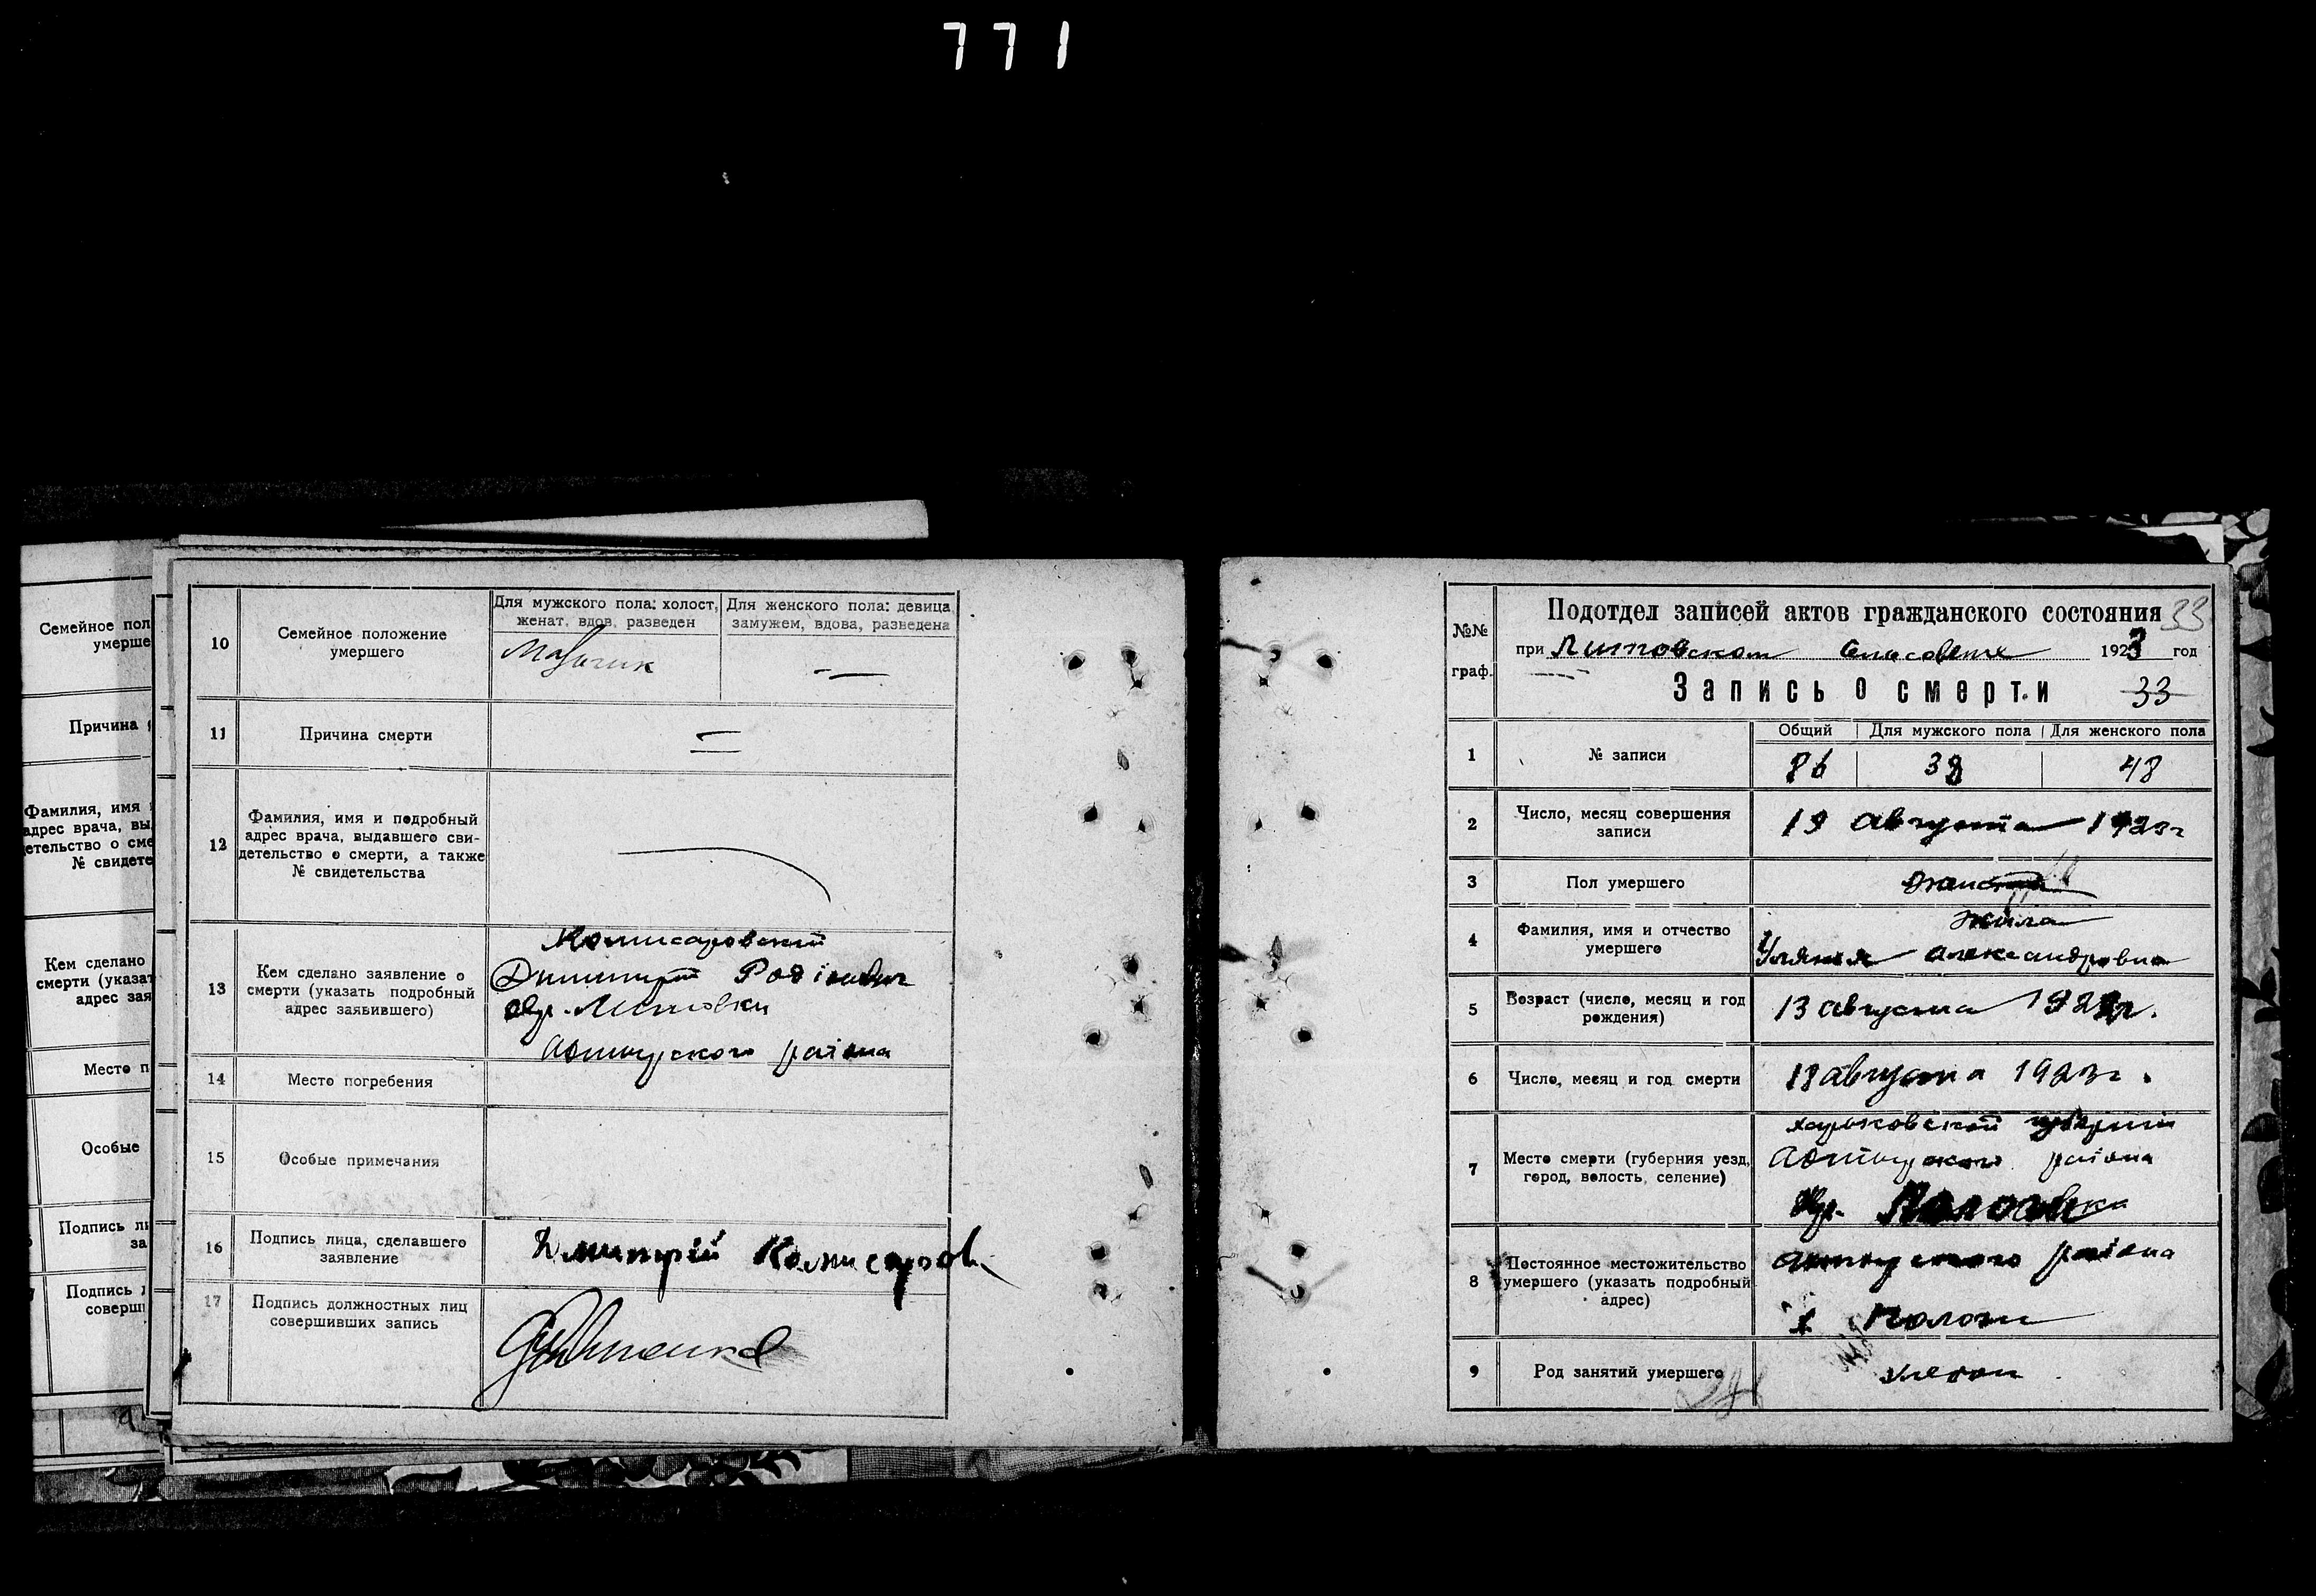 771
Семейное пол
умерше
Причина
Фамилия, имя
адрес врача, вы
етельство о сме
№ свидете
Кем сделано
смерти (указат
адрес зая
Место п
Особые
Подпись ли
за
Подпись
соверш
10
Семейное положение
умершего
Для мужского пола: холост,
женат, вдов, разведен
Для женского пола: девица,
замужем, вдова, разведена
Мальчик
—
11
Причина смерти
=
12
Фамилия, имя и подробный
адрес врача, выдавшего сви-
детельство о смерти, а также
№ свидетельства
13
Кем сделано заявление о
смерти (указать подробный
адрес заявившего)
Комисаровский
Димитрий Родіонович
хут. Литовки
Ахтырского района
14
Место погребения
15
Особые примечания
16
Подпись лица, сделавшего
заявление
Дмитрій Комисаров
17
Подпись должностных лиц
совершивших запись
№№
граф.
Подотдел записей актов гражданского состояния 33
при Литовском Сельсовете 1923 год
Запись о смерти 33
1
№ записи
Общий Для мужского пола Для женского пола
86 38 48
2
Число, месяц совершения
записи
19 августа 1923 г
3
Пол умершего
женский
4
Фамилия, имя и отчество
умершего
Жила
Уляния Александровна
5
Возраст (число, месяц и год
рождения)
13 августа
6
Число, месяц и год смерти
18 августа 1923 г.
7
Место смерти (губерния уезд,
город, волость, селение)
харьковской губерний
Ахтырского района
хут.
8
Постоянное местожительство
умершего (указать подробный
адрес)
Ахтырского района
х
9
Род занятий умершего